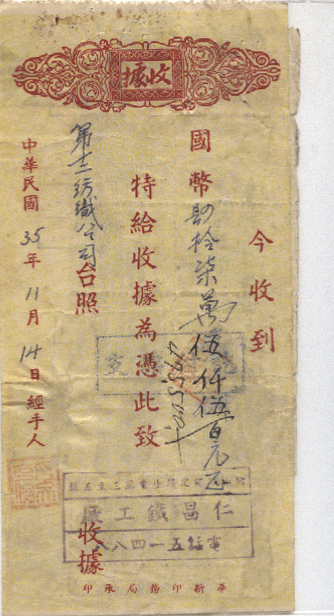 收據
今收到
國幣肆拾柒萬伍仟伍百元正
特給收據為憑此致
第十二紡織公司台照
中華民國35年11月14日經手人
仁昌鐵工廠
電話五一四八八
收據
華新印務局承印